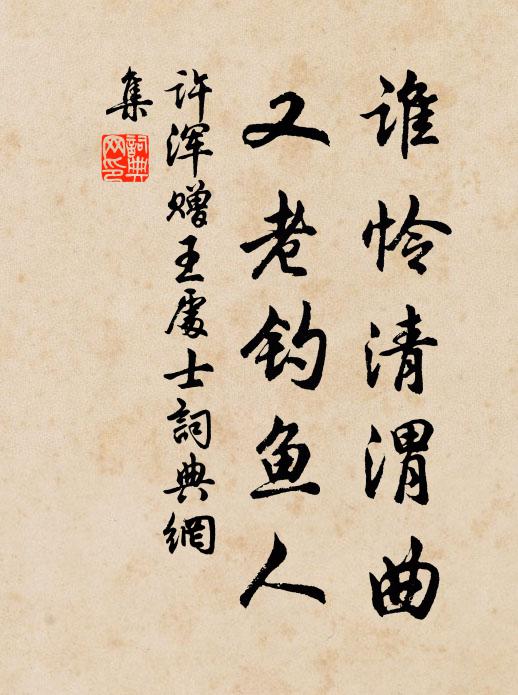 谁怜清渭曲
又老钓鱼人
许浑赠王處士詞典網
集
詞典
网印